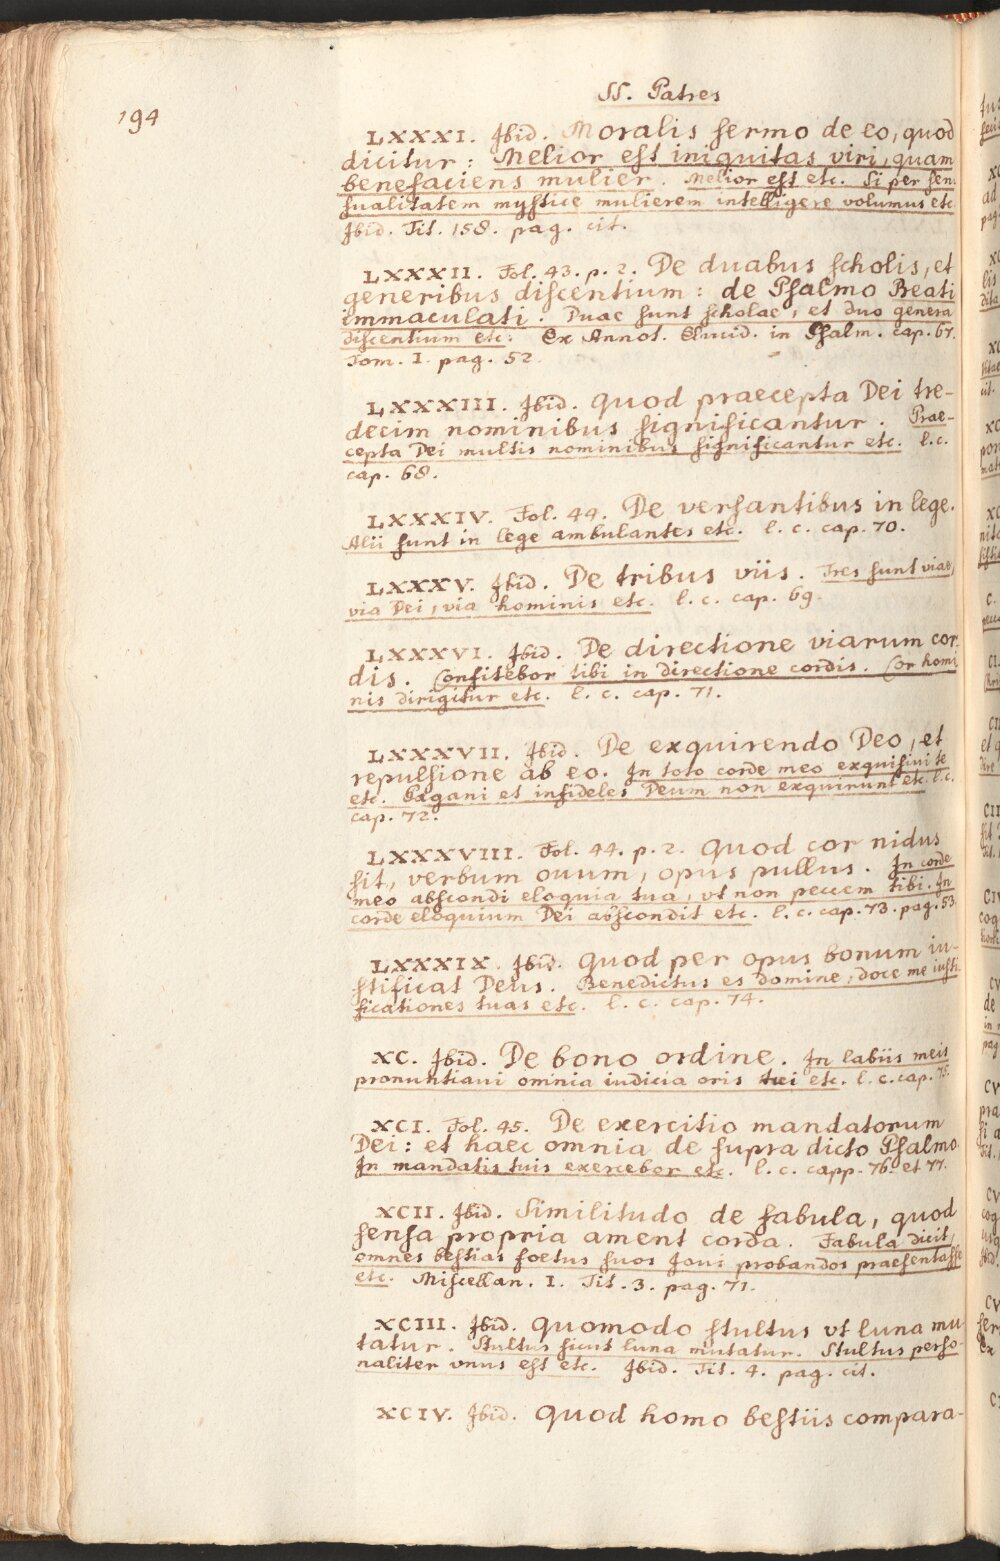 SS. Patres
194
LXXXI. Ibid. Moralis sermo de eo, quod
dicitur: Melior est iniquitas viri, quam
benefaciens mulier. Melior est etc. Si per sen-
sualitatem mystice mulierem intelligere volumus etc.
Ibid. Tit. 158. pag. cit.
LXXXII. Fol. 43. p. 2. De duabus scholis, et
generibus discentium: de Psalmo Beati
immaculati. Duae sunt scholae, et duo genera
discentium etc: Ex Annot. Elucid. in Psalm. cap. 67.
Tom. I. pag. 52.
LXXXIII. Ibid. Quod praecepta Dei tre-
decim nominibus significantur. Prae-
cepta Dei multis nominibus significantur etc. l. c.
cap. 68.
LXXXIV. Fol. 44. De versantibus in lege.
Alii sunt in lege ambulantes etc. l. c. cap. 70.
LXXXV. Ibid. De tribus viis. Tres sunt viae,
via Dei, via hominis etc. l. c. cap. 69.
LXXXVI. Ibid. De directione viarum cor-
dis. Confitebor tibi in directione cordis. Cor homi-
nis dirigitur etc. l. c. cap. 71.
LXXXVII. Ibid. De exquirendo Deo, et
repulsione ab eo. In toto corde meo exquisivi te
etc. Pagani et infideles Deum non exquirunt etc. l. c.
cap. 72.
LXXXVIII. Fol. 44. p. 2. Quod cor nidus
sit, verbum ouum, opus pullus. In corde
meo abscondi eloquia tua, vt non peccem tibi. In
corde eloquium Dei abscondit etc. l. c. cap. 73. pag. 53.
LXXXIX. Ibid. Quod per opus bonum iu-
stificat Deus. Benedictus es domine, doce me iusti-
ficationes tuas etc. l. c. cap. 74.
XC. Ibid. De bono ordine. In labiis meis
pronuntiaui omnia iudicia oris tui etc. l. c. cap. 75.
XCI. Fol. 45. De exercitio mandatorum
Dei: et haec omnia de supra dicto Psalmo.
In mandatis tuis exercebor etc. l. c. capp. 76. et 77.
XCII. Ibid. Similitudo de fabula, quod
sensa propria ament corda. Fabula dicit,
omnes bestias foetus suos Joui probandos praesentasse
etc. Miscellan. I. Tit. 3. pag. 71.
XCIII. Ibid. Quomodo stultus vt luna mu-
tatur. Stultus sicut luna mutatur. Stultus perso-
naliter vnus est etc. Ibid. Tit. 4. pag. cit.
XCIV. Ibid. Quod homo bestiis compara-